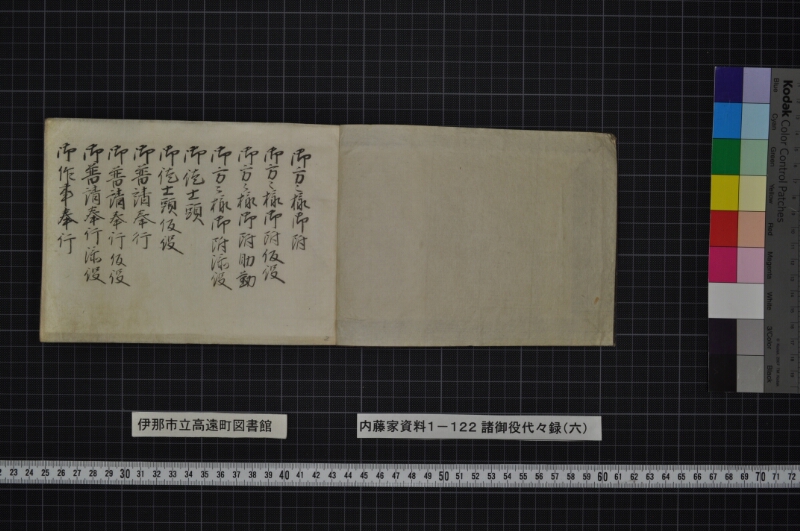 御方々様御附
御方々様御附仮役
御方々様御附助勤
御方々様御附添役
御徒士頭
御徒士頭仮役
御普請奉行
御普請奉行仮役
御普請奉行添役
御作事奉行
伊那市立高遠町図書館
内藤家資料1－122 諸御役代々録（六）
Kodak Color Control Patches
Blue
Cyan
Green
Yellow
Red
Magenta
White
3/Color
Black
23 24 25 26 27 28 29 30 31 32 33 34 35 36 37 38 39 40 41 42 43 44 45 46 47 48 49 50 51 52 53 54 55 56 57 58 59 60 61 62 63 64 65 66 67 68 69 70 71 72